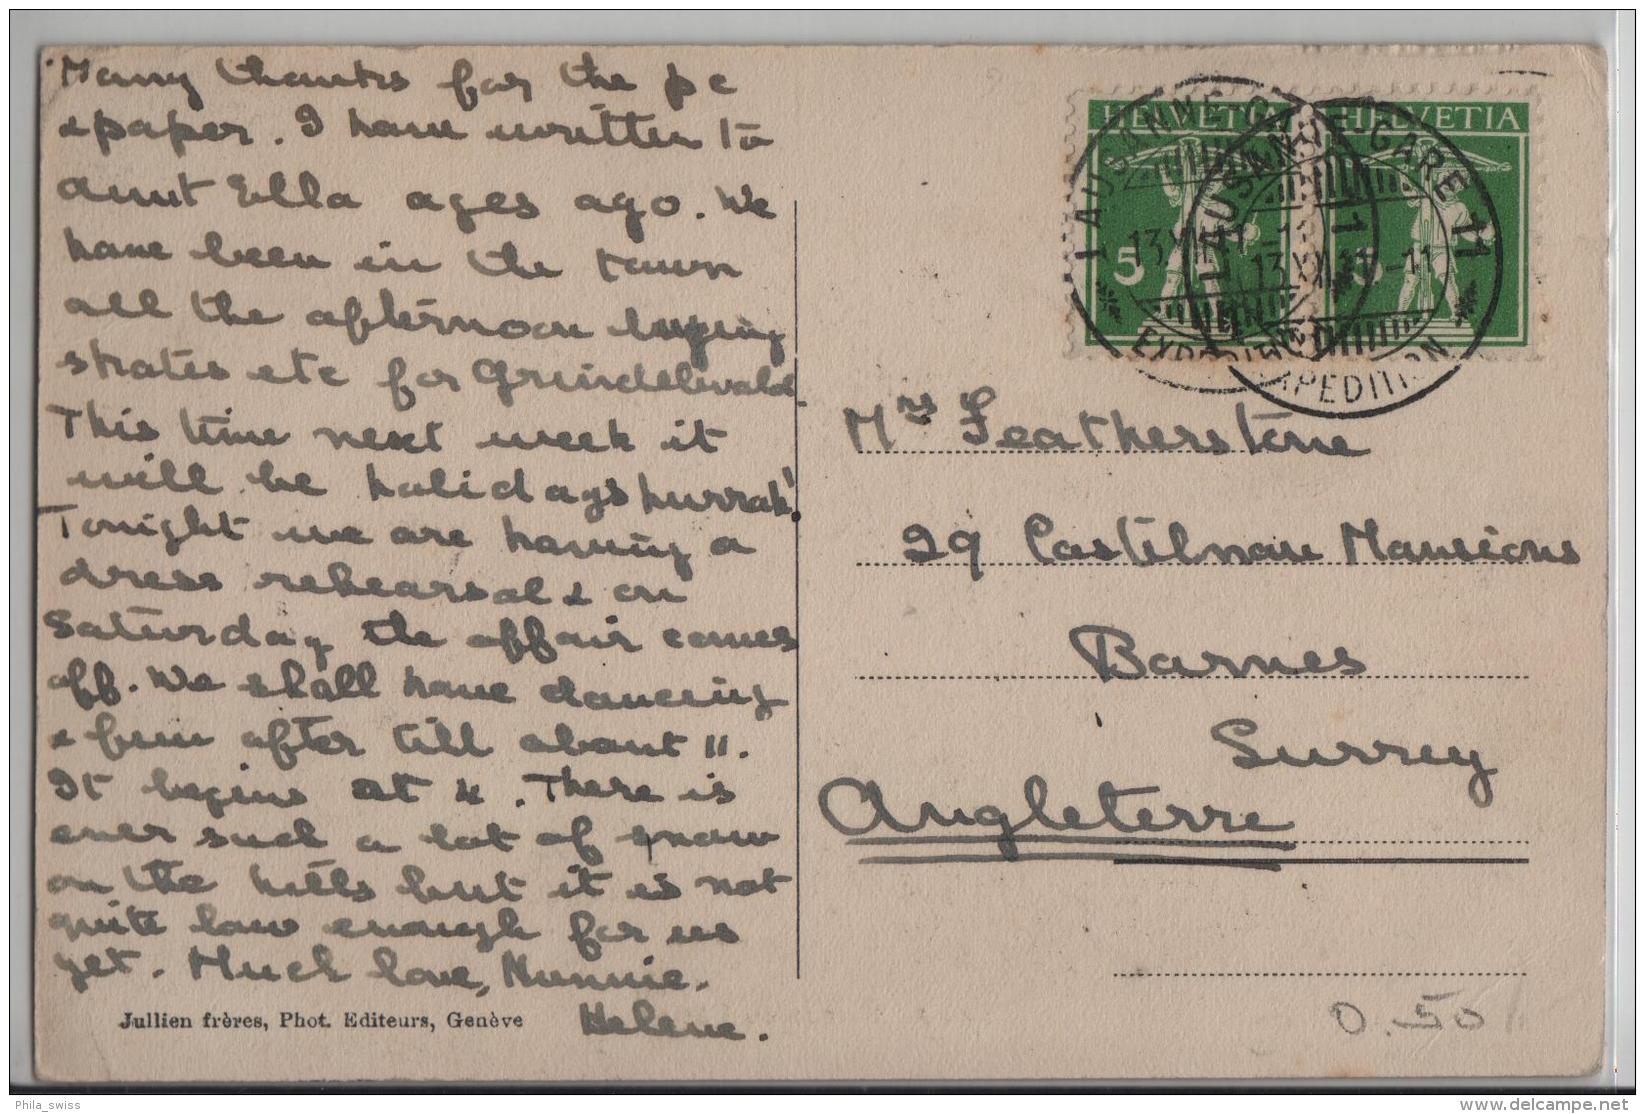 Many thanks for the pc
& paper. I have written to
aunt Ella ages ago. We
have been in the town
all the afternoon buying
skates etc for Grindelwald
This time next week it
will be holidays hurrah!
Tonight we are having a
dress rehearsal & on
Saturday the affair comes
off. We shall have dancing
& fun after till about 11.
It begins at 4. There is
ever such a lot of snow
on the hills but it is not
quite low enough for us
yet. Much love, Nunnie.
Helene.
Jullien frères, Phot. Editeurs, Genève
HELVETIA HELVETIA
5
LAUSANNE-GARE 11
13.XII.11-11
EXPEDITION
LAUSANNE-GARE 11
13.XII.11-11
EXPEDITION
Mrs Featherstone
29 Castelnau Mansions
Barnes
Surrey
Angleterre
0.50
Phila_swiss
delcampe.net